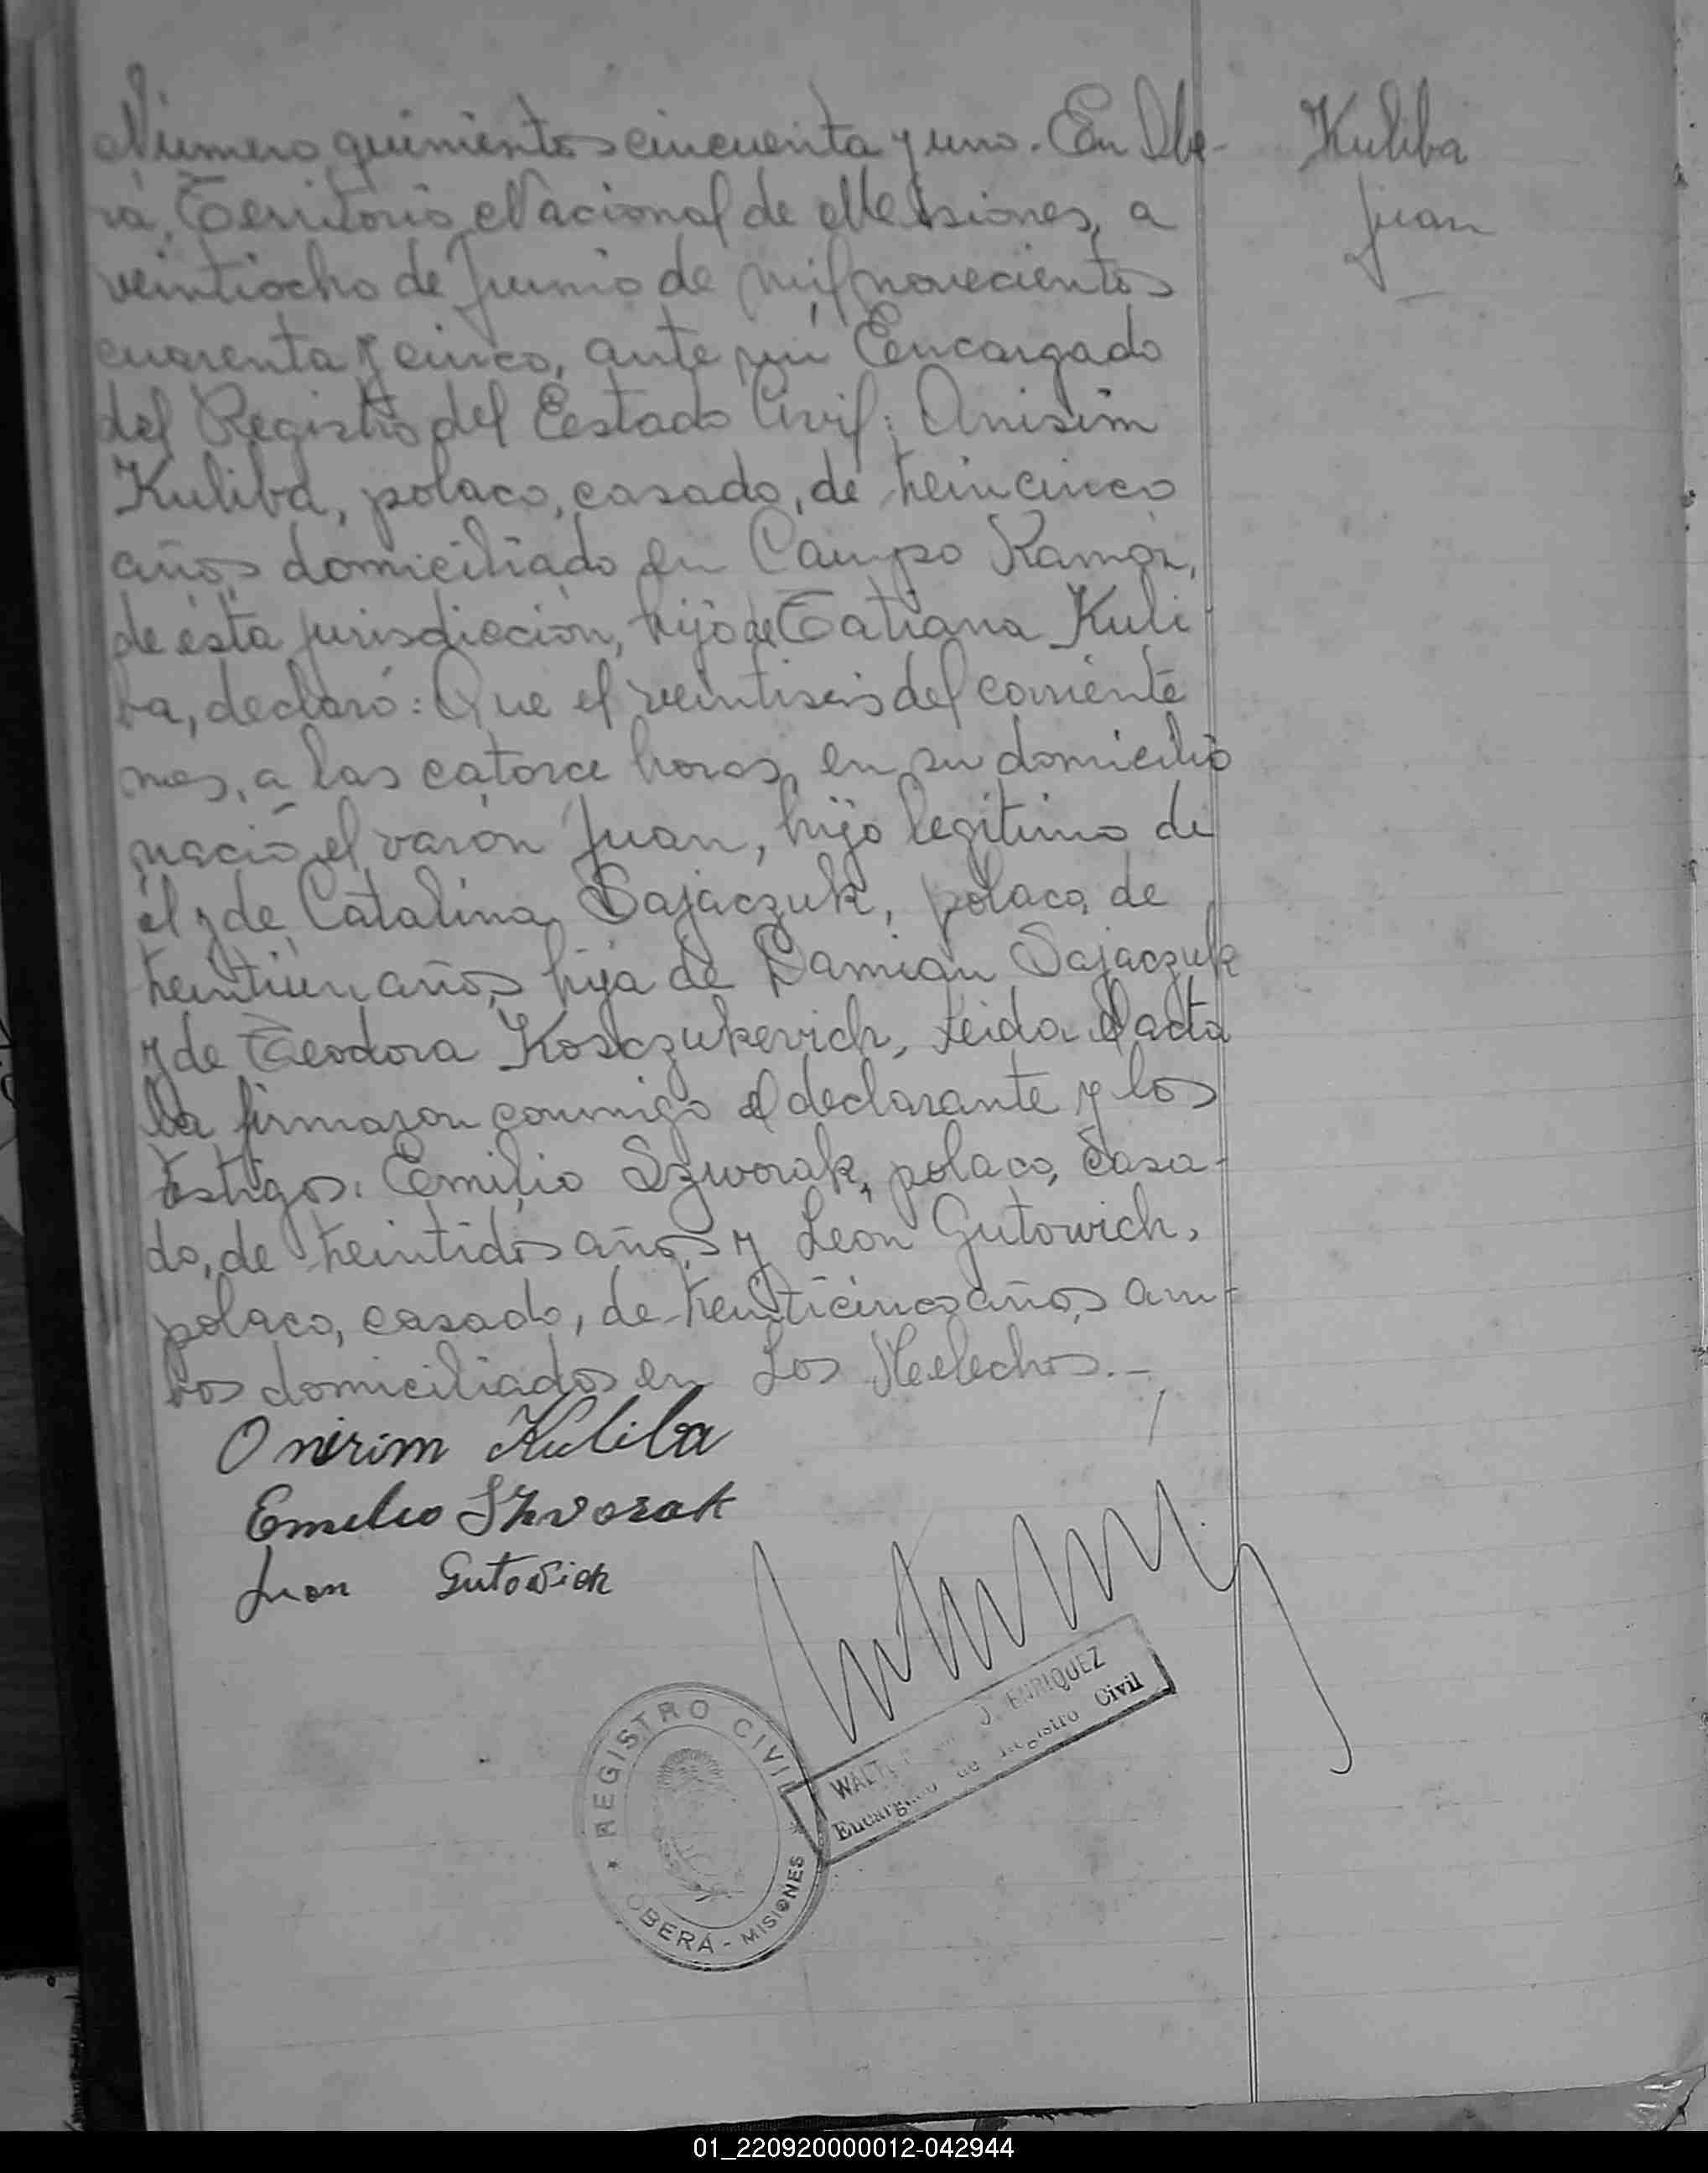 Número quinientos cincuenta y uno. En Obe-
rá, Territorio Nacional de Misiones, a
veintiocho de Junio de mil novecientos
cuarenta y cinco, ante mí Encargado
del Registro del Estado Civil: Anisim
Kuliba, polaco, casado, de treincinco
años domiciliado en Campo Ramón,
de ésta jurisdicción, hijo de Tatiana Kuli
ba, declaró: Que el veintiseis del corriente
mes, a las catorce horas, en su domicilio
nació el varón Juan, hijo legítimo de
él y de Catalina Sajaczuk, polaca, de
treintiun años, hija de Damian Sajaczuk
y de Teodora Kosczukevich, Leida el acta
la firmaron conmigo el declarante y los
testigos: Emilio Szworak, polaco, casa-
do, de treintidos años y León Gutowich,
polaco, casado, de treinticinco años, am-
bos domiciliados en Los Helechos.-
Kuliba
Juan
Onirim Kuliba
Emilio Szvorak
Leon Gutowich
J. ENRIQUEZ
Encargado de Registro Civil
REGISTRO CIVIL
OBERÁ - MISIONES
01_220920000012-042944